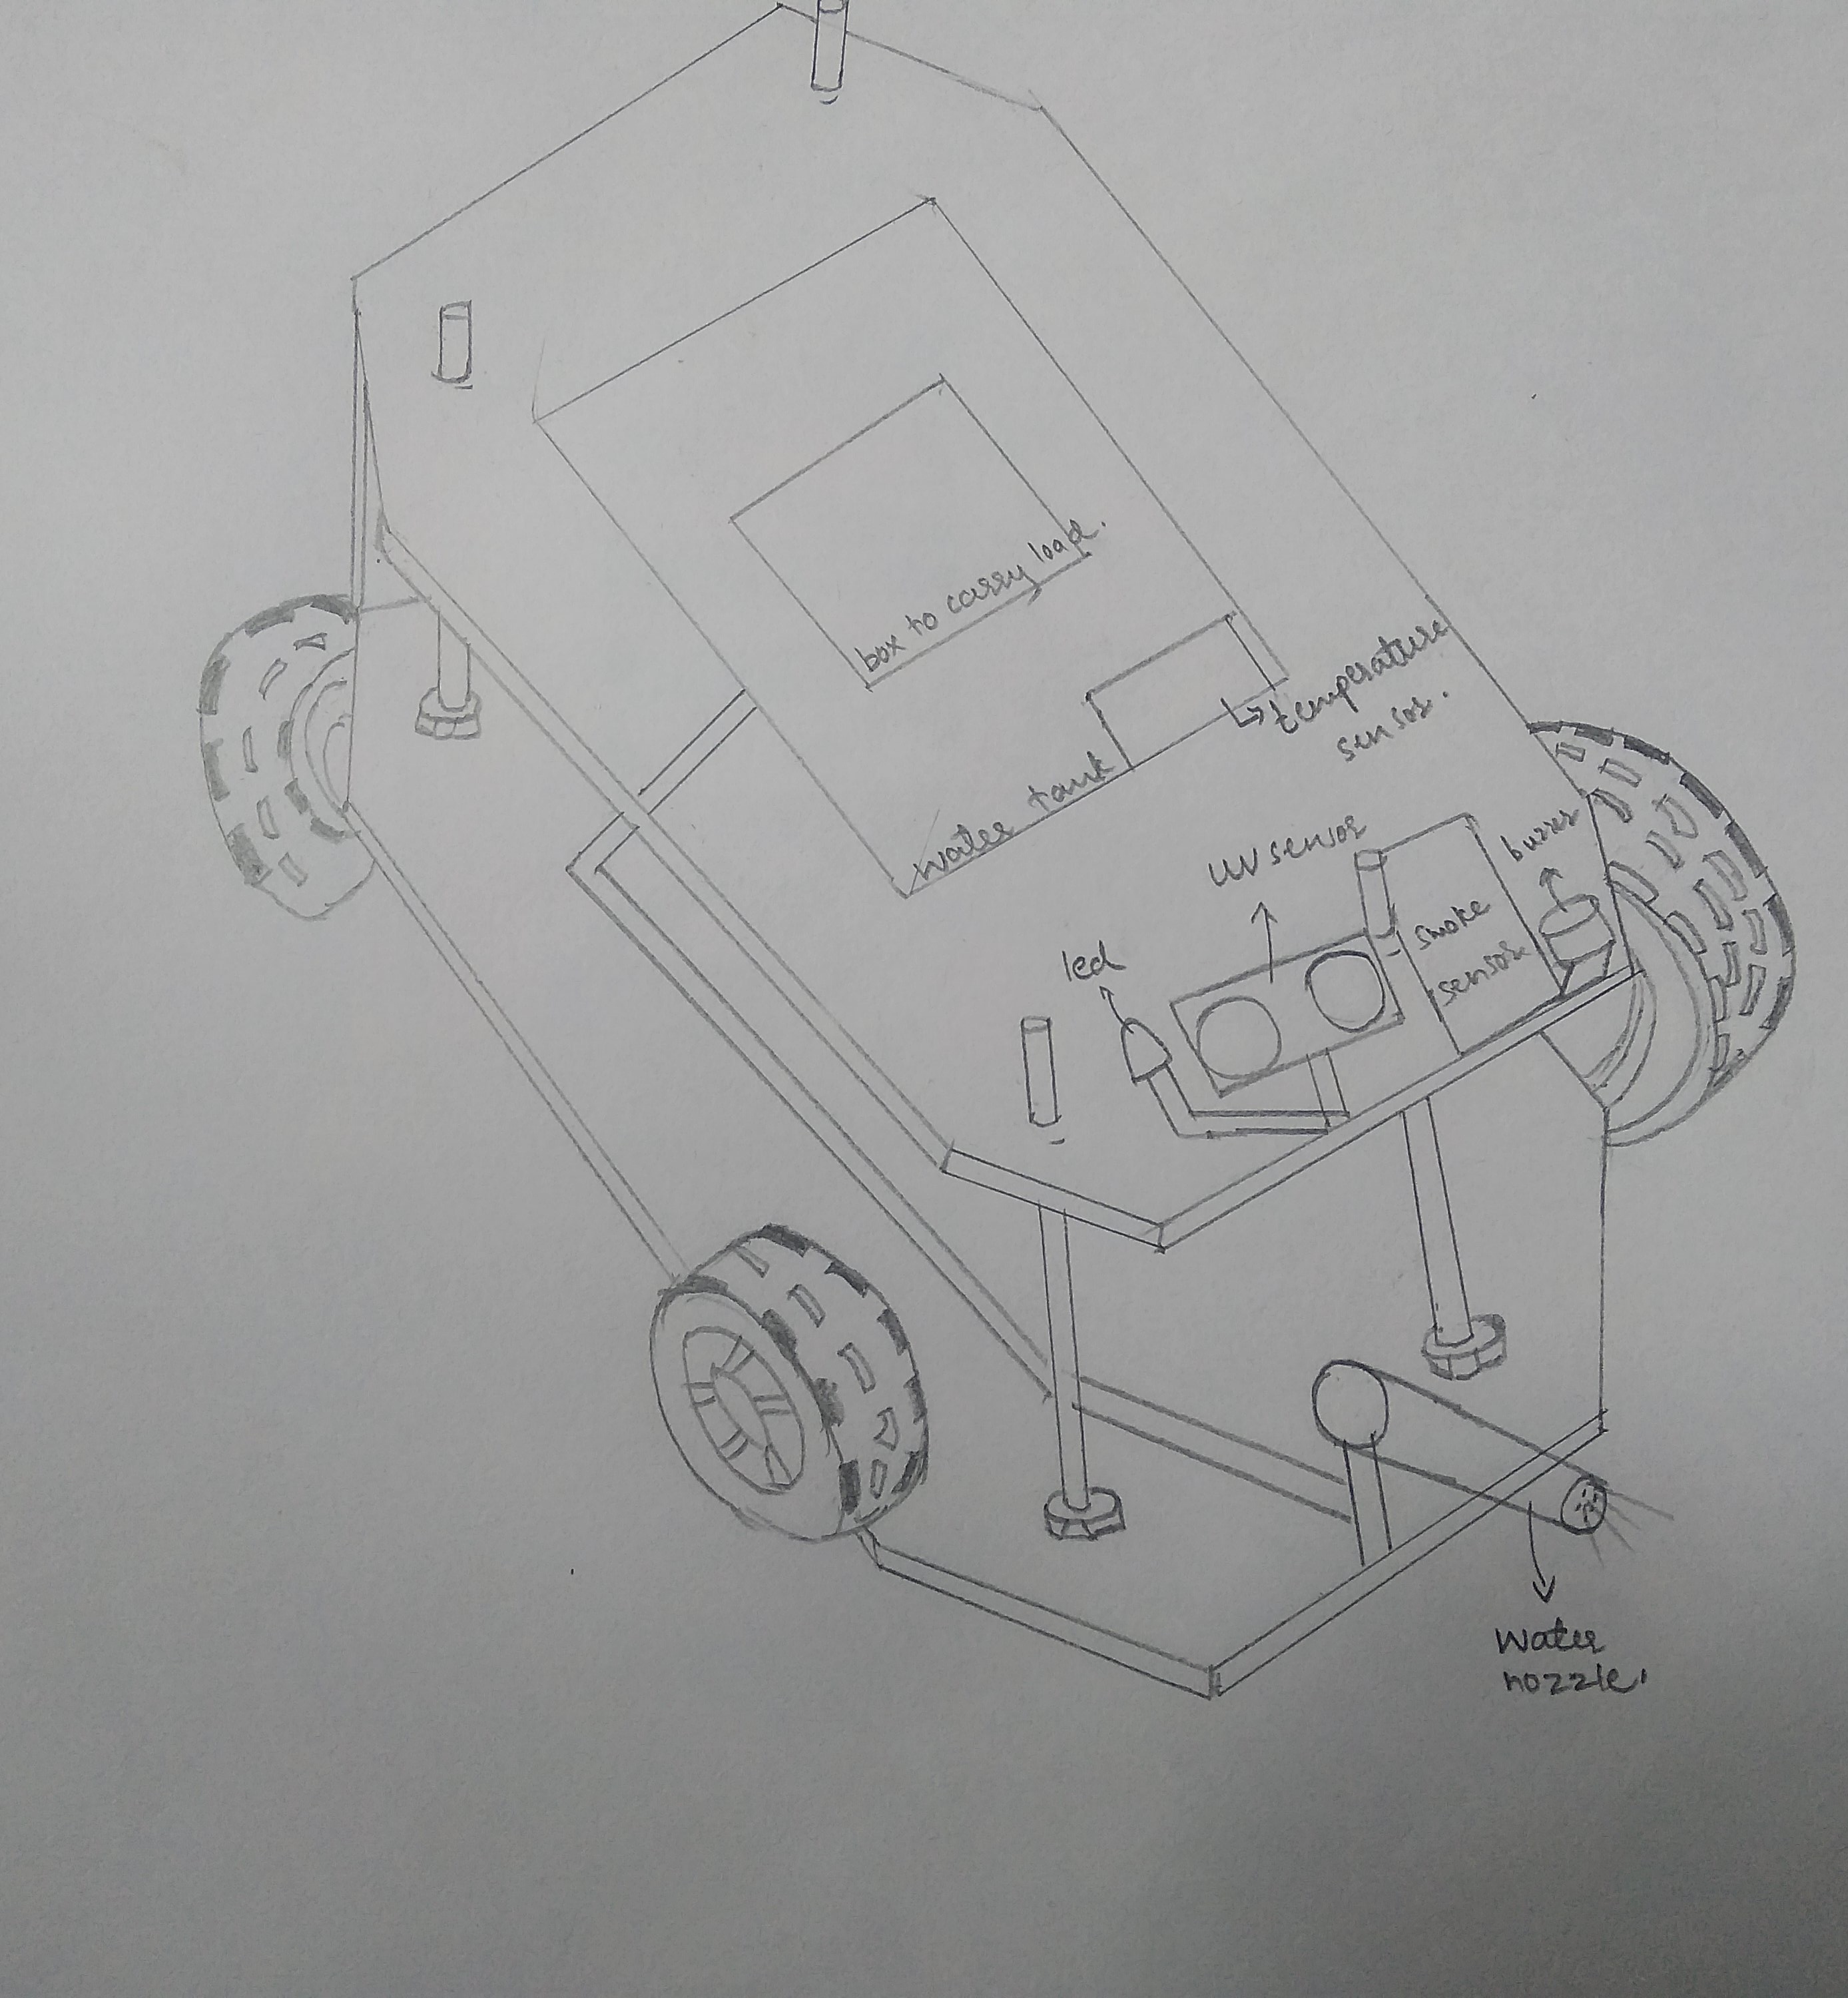 box to carry load.
temperature
sensor.
water tank
UV sensor
buzzer
smoke
sensor
led
Water
nozzle.